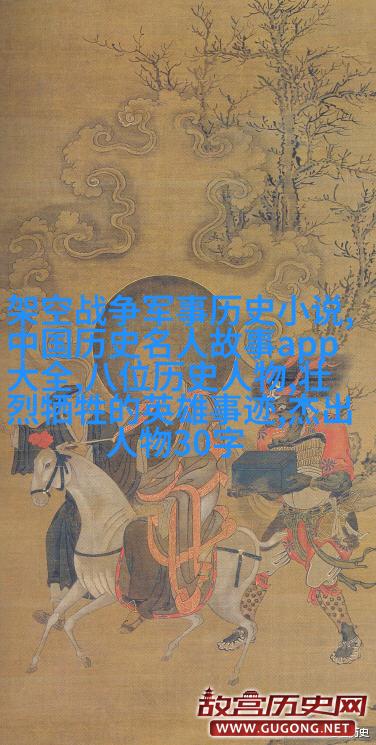 架空战争军事历史小说,
中国历史名人故事app
大全,八位历史人物,壮
烈牺牲的英雄事迹,杰出
人物30字
故宫历史网
WWW.GUGONG.NET
历史